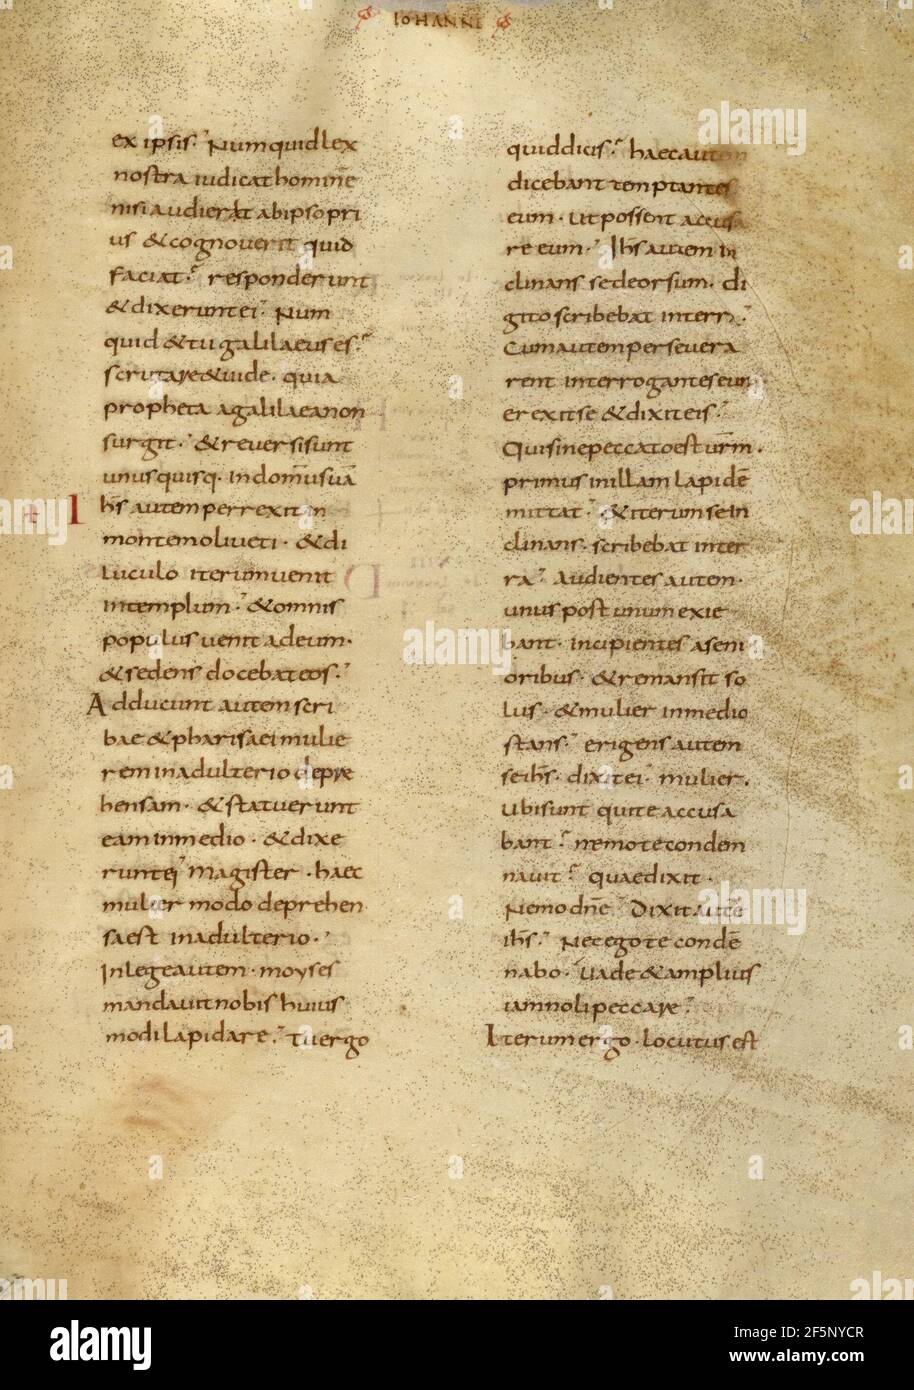 IOHANNE
ex ipsis.' Numquid lex
nostra iudicat hominē
nisi audierit ab ipso pri
us & cognoverit quid
faciat? responderunt
& dixerunt ei.' Num
quid & tu galilaeus es?
scrutare & uide. quia
propheta a galilaea non
surgit.' & reversi sunt
unusquisq. in domū suā
Ihs autem perrexit in
montem oliveti. & di
luculo iterum venit
in templum.' & omnis
populus venit ad eum.
& sedens docebat eos.'
Adducunt autem scri
bae & pharisaei mulie
rem in adulterio depre
hensam. & statuerunt
eam in medio. & dixe
runt ei' Magister. haec
mulier modo deprehen
sa est in adulterio.'
In lege autem. moyses
mandavit nobis huius
modi lapidare.' Tu ergo
quid dicis? haec autem
dicebant temptantes
eum. ut possent accusa
re eum.' Ihs autem in
clinans se deorsum. di
gito scribebat in terra.'
Cum autem persevera
rent interrogantes eum
erexit se & dixit eis.'
Qui sine peccato est urm̄.
primus in illam lapidē
mittat.' & iterum se in
clinans. scribebat in ter
ra.' Audientes autem.
unus post unum exie
bant. incipientes a seni
oribus. & remansit so
lus. & mulier in medio
stans.' erigens autem
se ihs. dixit ei. mulier.
ubi sunt qui te accusa
bant? nemo te condem
navit? quae dixit.
Nemo dnē.' Dixit autē
ihs.' Nec ego te condē
nabo.' vade & amplius
iam noli peccare.'
Iterum ergo. locutus est
alamy
Image ID: 2F5NYCR
www.alamy.com